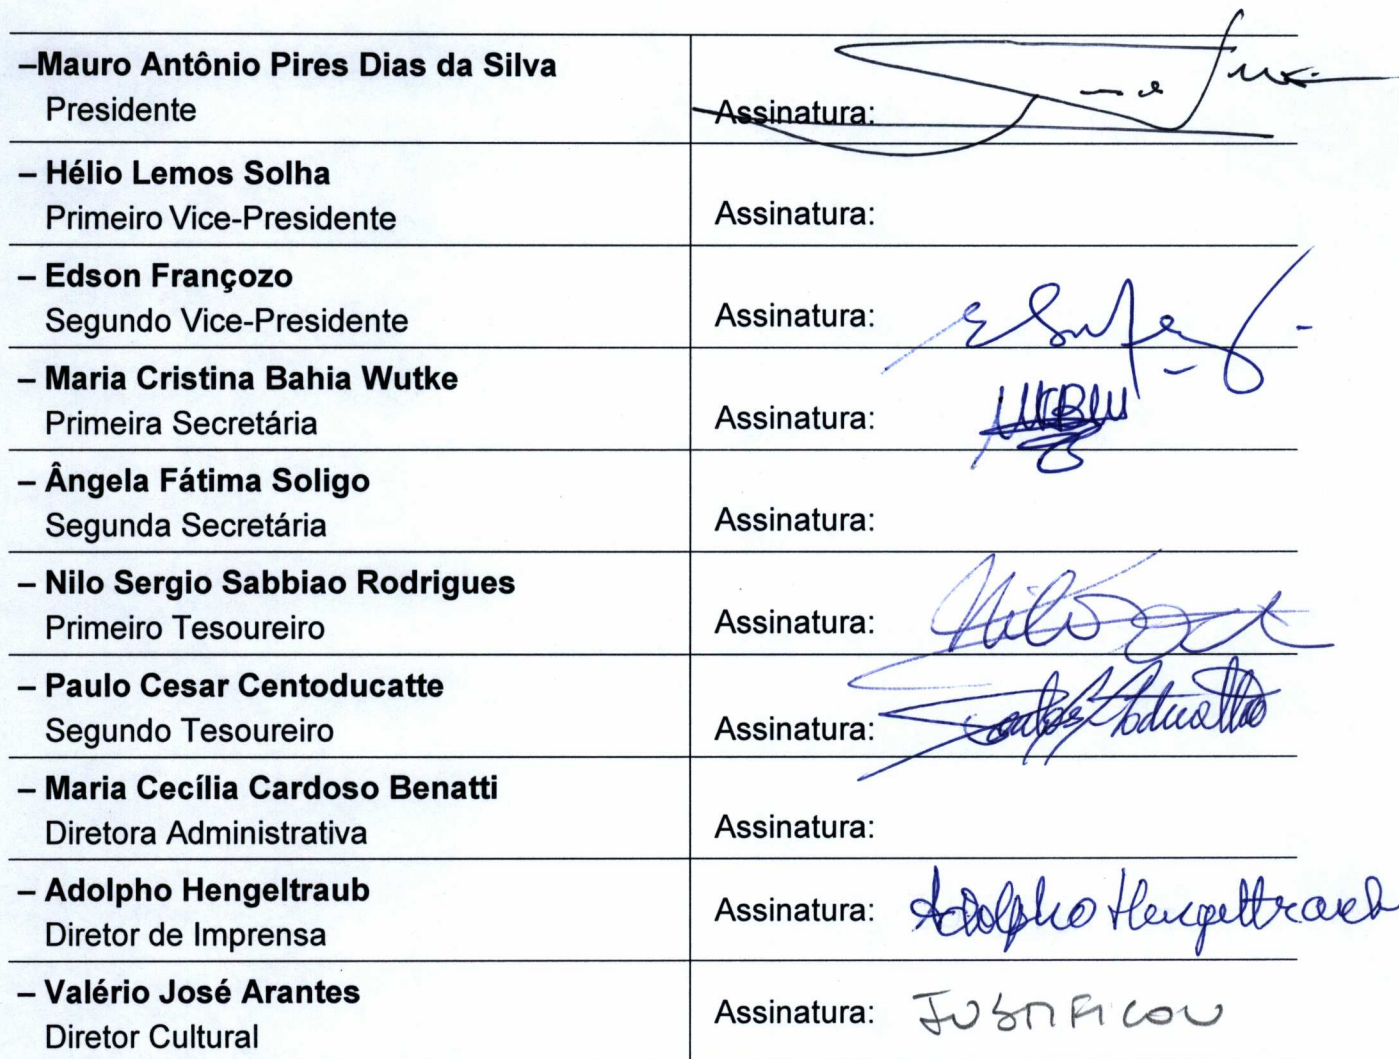 –Mauro Antônio Pires Dias da Silva
Presidente
Assinatura:
– Hélio Lemos Solha
Primeiro Vice-Presidente
Assinatura:
– Edson Françozo
Segundo Vice-Presidente
Assinatura:
– Maria Cristina Bahia Wutke
Primeira Secretária
Assinatura: MCBW
– Ângela Fátima Soligo
Segunda Secretária
Assinatura:
– Nilo Sergio Sabbiao Rodrigues
Primeiro Tesoureiro
Assinatura: Nilo
– Paulo Cesar Centoducatte
Segundo Tesoureiro
Assinatura:
– Maria Cecília Cardoso Benatti
Diretora Administrativa
Assinatura:
– Adolpho Hengeltraub
Diretor de Imprensa
Assinatura: Adolpho Hengeltraub
– Valério José Arantes
Diretor Cultural
Assinatura: JUSTIFICOU